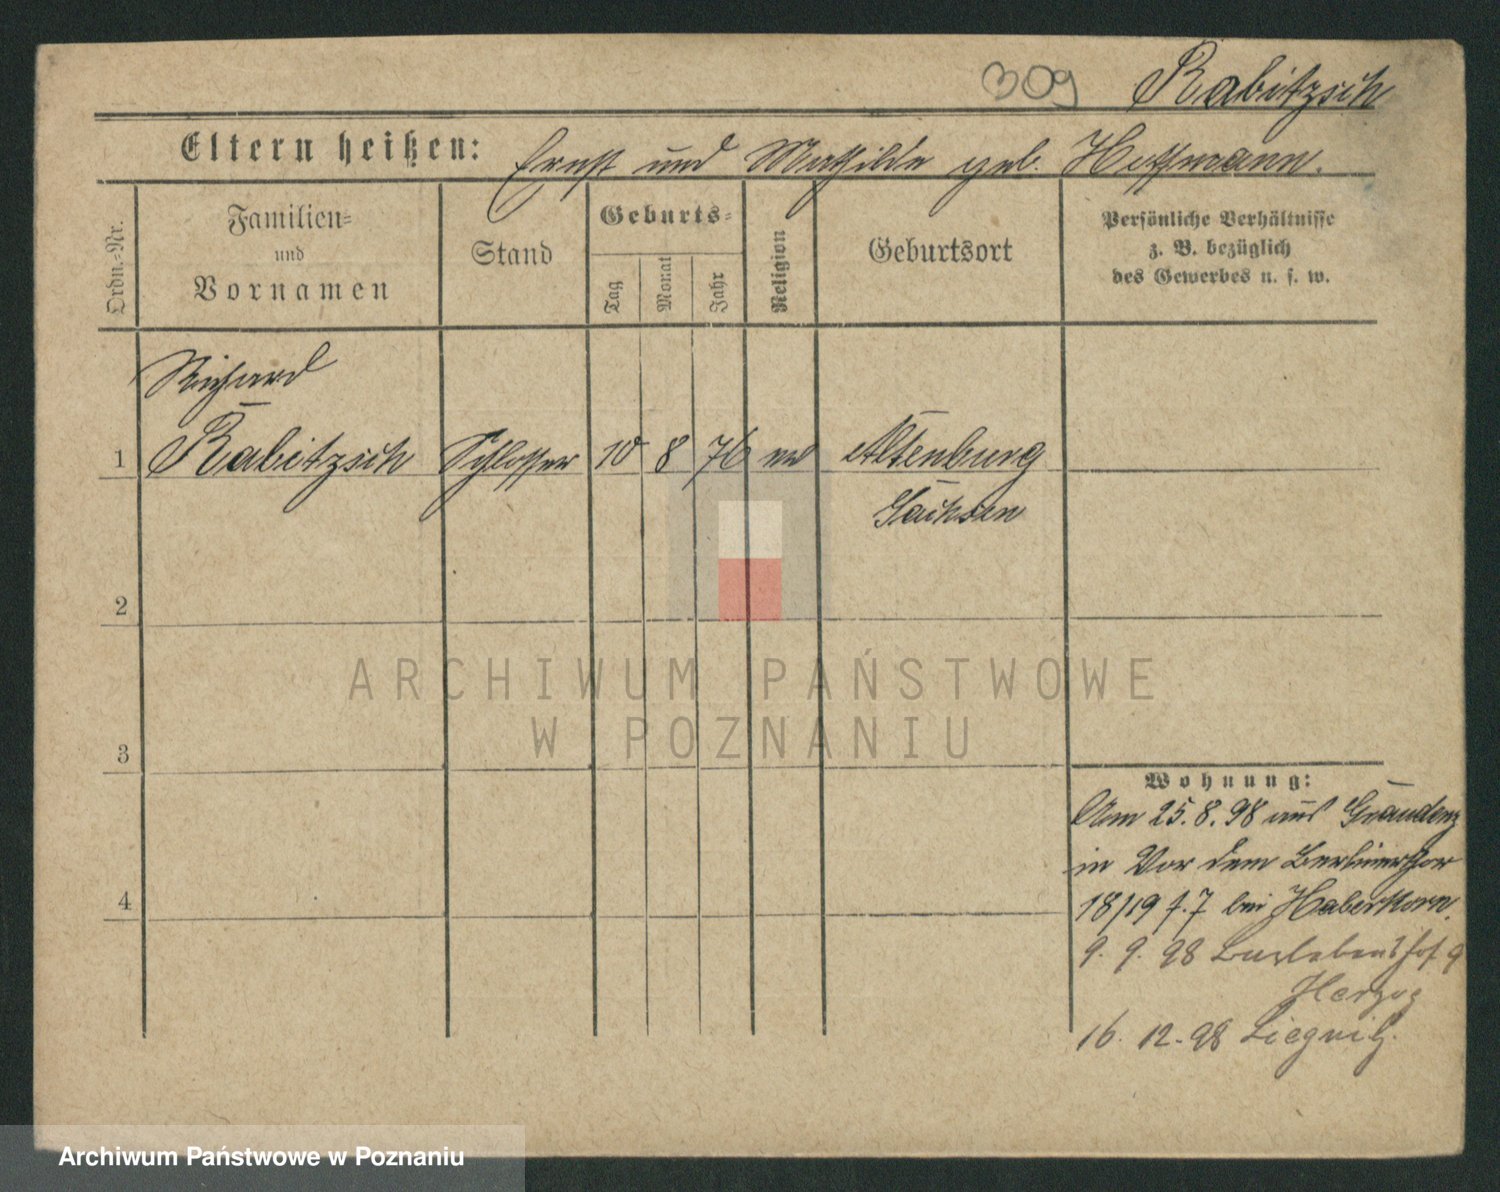 309 Rabitzsch
Eltern heißen: Ernst und Mathilde geb. Hoffmann.
Ordn.-Nr.
Familien-
und
Vornamen
Stand
Geburts-
Tag
Monat
Jahr
Religion
Geburtsort
Persönliche Verhältnisse
z. B. bezüglich
des Gewerbes u. s. w.
Richard
1 Rabitzsch Schlosser 10 8 76 ev Altenburg
Sachsen
2
3
4
Wohnung:
Am 25.8.98 aus Graudenz
in Vor dem Berlinerthor
18/19 f. 7 bei Haberkorn.
9. 9. 98 9
Herzog
16. 12. 98 Liegnitz.
ARCHIWUM PAŃSTWOWE
W POZNANIU
Archiwum Państwowe w Poznaniu